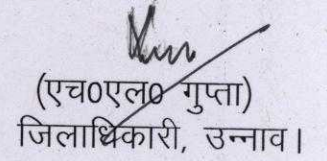 (एच0एल0 गुप्ता)
जिलाधिकारी, उन्नाव।